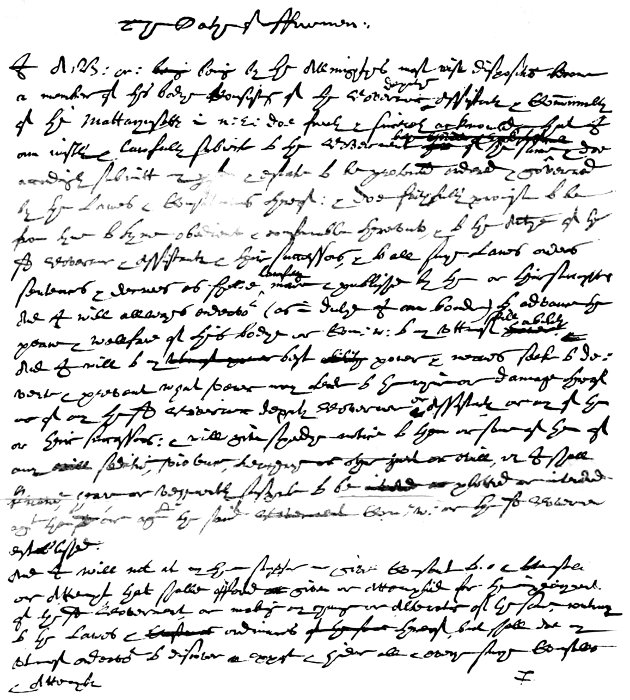 The Oathe of ffreemen:
I A: B: &c: being by the Almightyes most wise disposition become
a member of this bodye Consistinge of the Governor deputye Assistants & Comminalty
of the Mattacusetts in N: E: doe freely & sincerely acknowledge that I
am iustly & lawfully subiect to the Goverment of the same & doe
accordingly submitt my person & estate to be protected ordered & governed
by the Lawes & Constitutions thereof: & doe faithfully promise to be
from tyme to tyme obedient & conformable therunto, & to the Authe of the
sd Governor & Assistants & their successors, & to all suche Lawes orders
sentences & decrees as shalbe lawfully made & publisshed by them or their successors
And I will allwayes endevor (as in dutye I am bound) to advance the
peace & wellfare of this bodye or Com: w: to my utmost skill & abilitye
And I will to my best power & meanes seeke to de:
verte & prevent what soever may tend to the ruin or damage thereof
or of any the sd Governor deputy Governor or Assistants or any of them
or their successors: & will give speedye notice to them or some of them of
any sedition, violence, treachery or other hurt or evill, wch I shall
knowe, heare or vehemently suspecte to be plotted or intended
agt them or agt the said Com: w: or the sd Governm
established.
And I will not at any tyme suffer or give Consent to any Counsell
or Attempt that shalbe offered given or attempted for the impeachment
of the sd Goverment or makinge any change or Alteration of the same contrary
to the Lawes & ordinances thereof but shall doe my
utmost endevor to discover oppose & hinder all & every suche Counsells
& Attempts